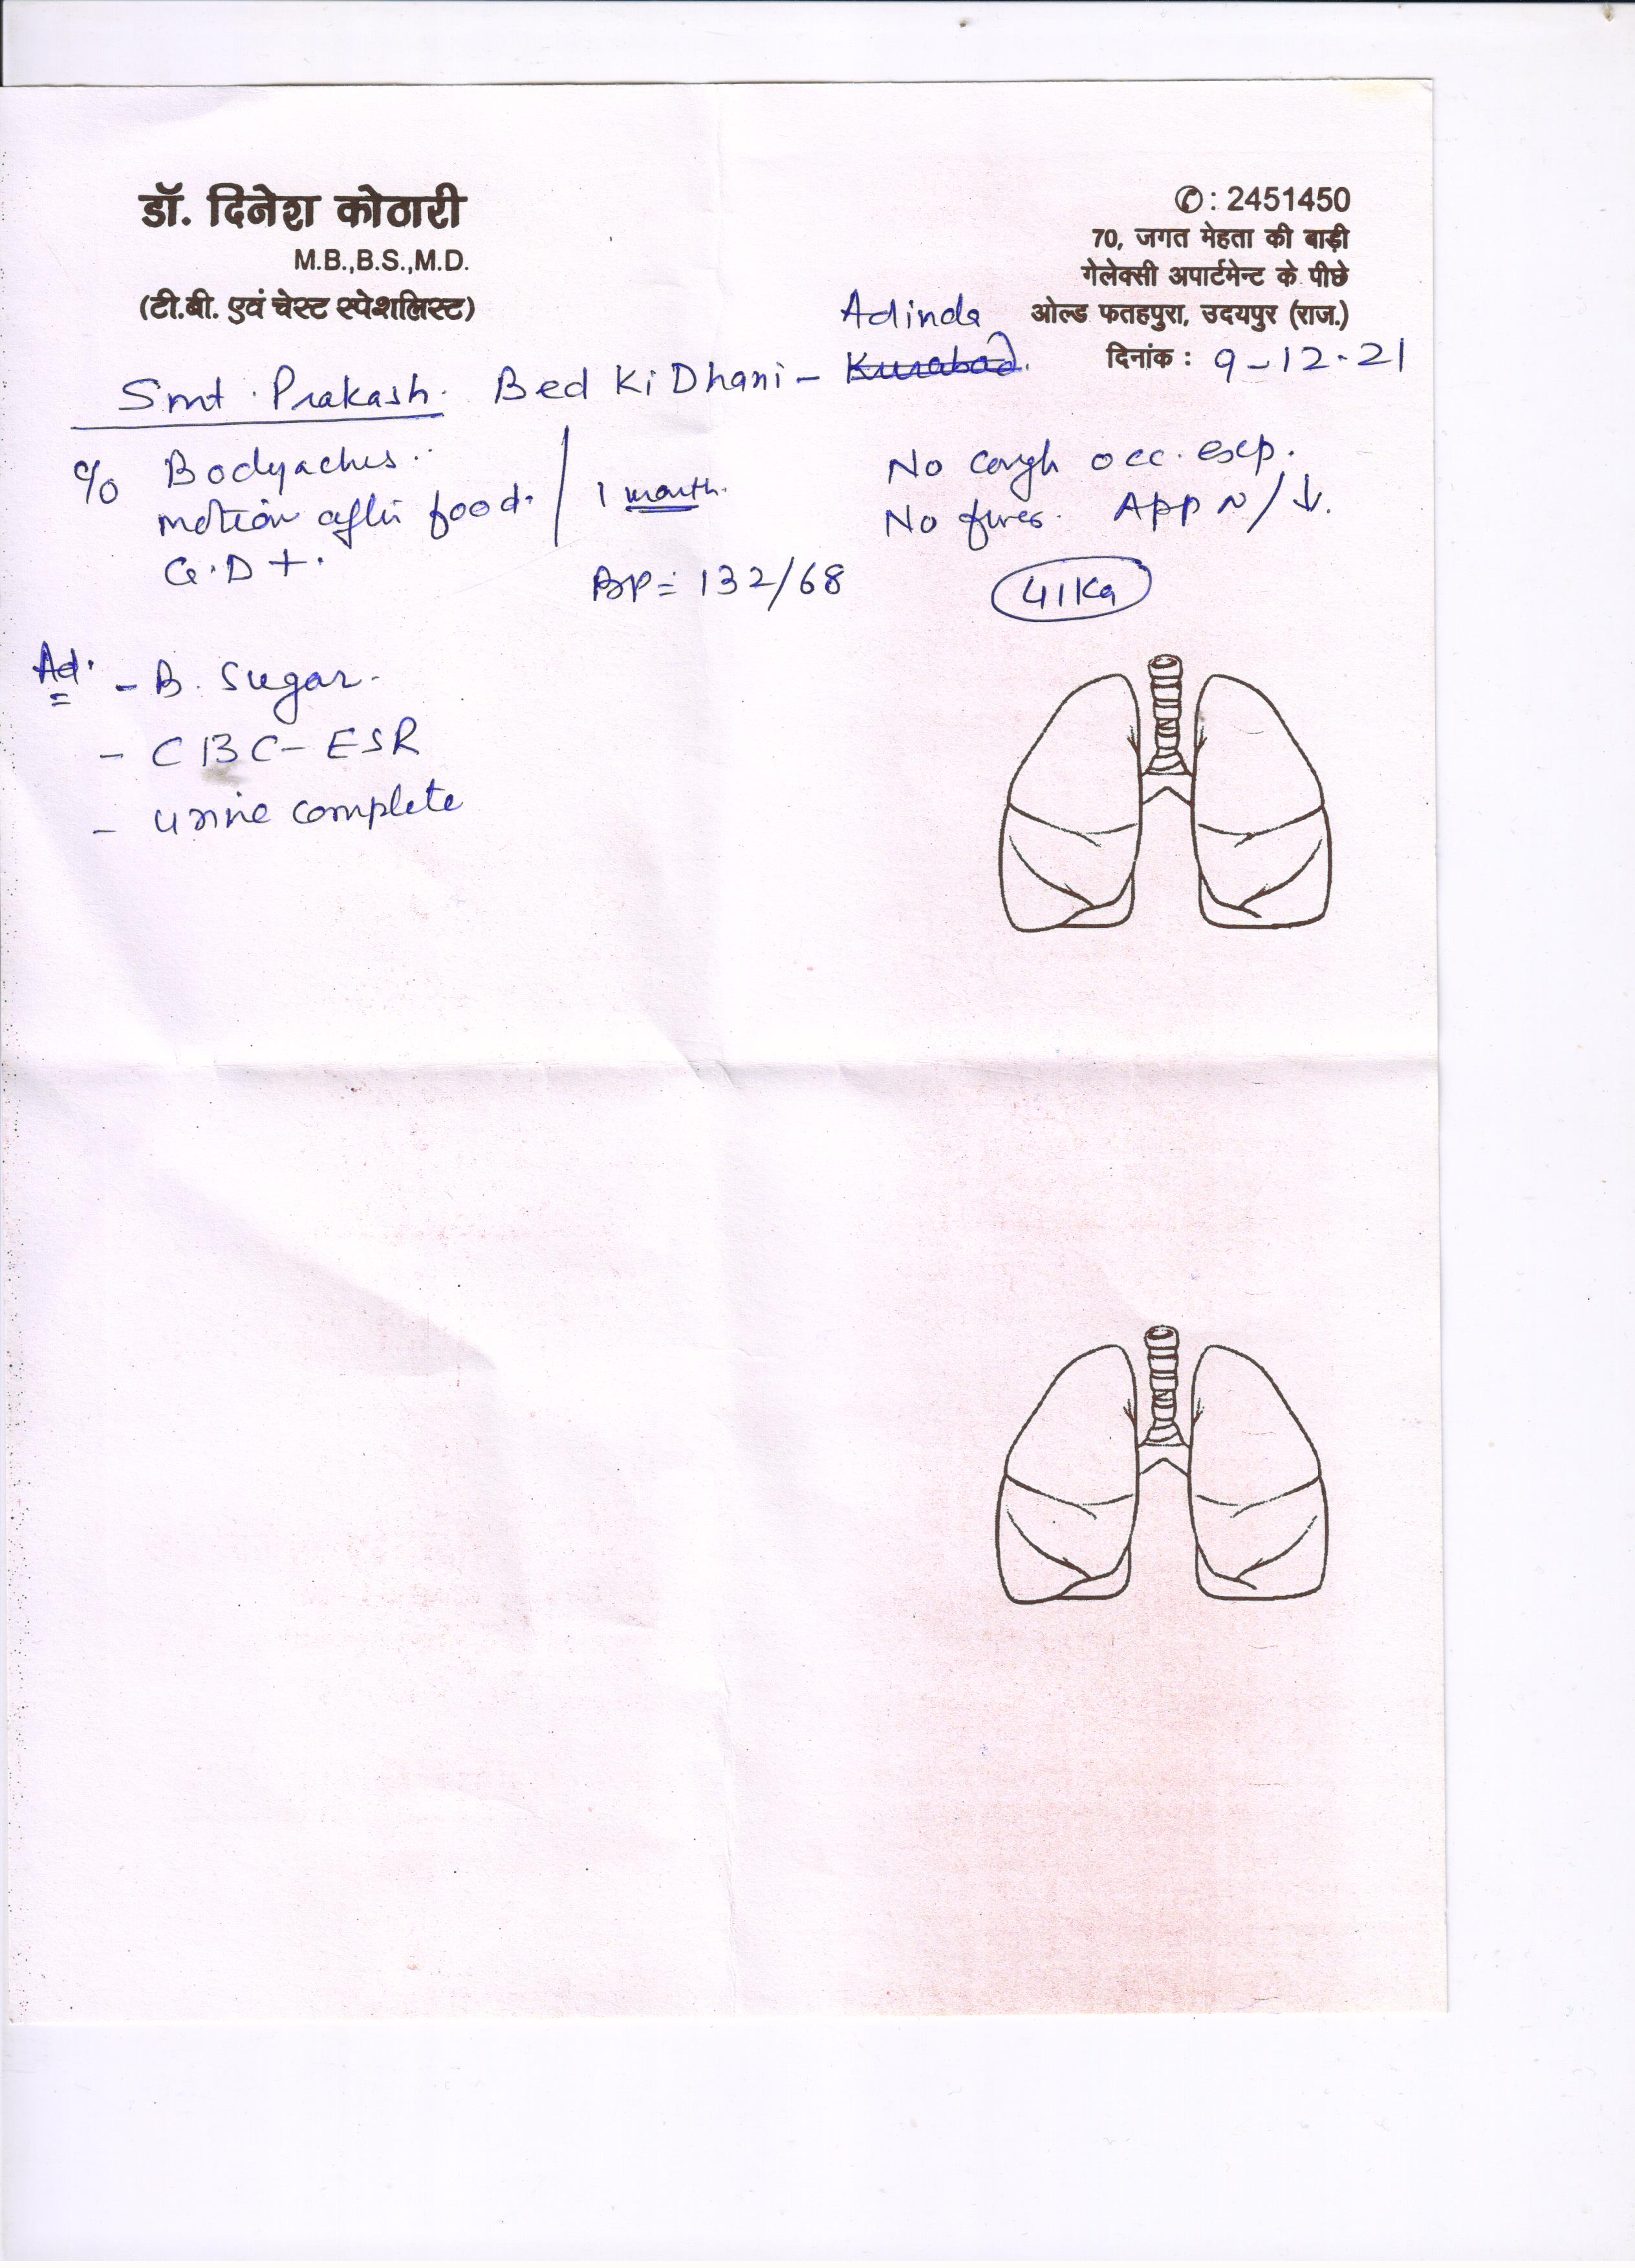 डॉ. दिनेश कोठारी
M.B.,B.S.,M.D.
(टी.बी. एवं चेस्ट स्पेशलिस्ट)
✆ : 2451450
70, जगत मेहता की बाड़ी
गेलेक्सी अपार्टमेन्ट के पीछे
ओल्ड फतहपुरा, उदयपुर (राज.)
दिनांक : 9-12-21
Adinda
Smt. Prakash. Bed Ki Dhani - Kurabad.
c/o Bodyaches
motion after food. / 1 month.
G.D +.
No cough occ. exp.
No fever. App N/↓.
BP = 132/68
41Kg
Ad.
- B. Sugar.
- CBC - ESR
- urine complete